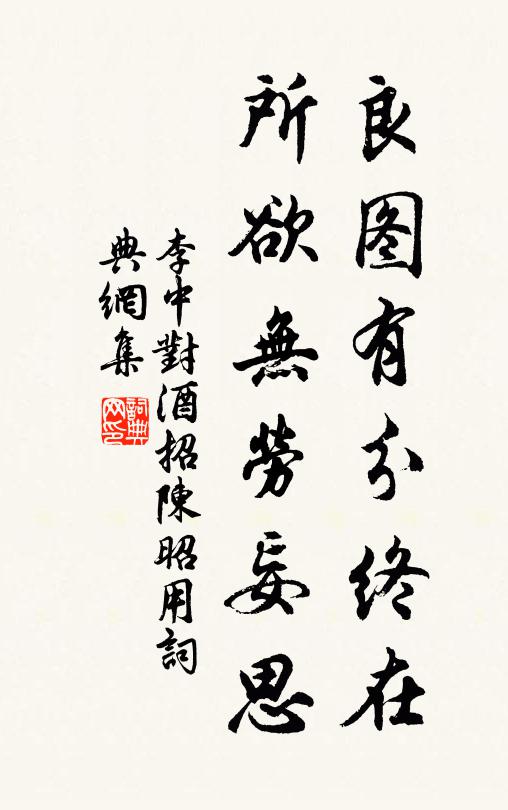 良图有分终在
所欲無勞妄思
李中對酒招陳昭用詞
典網集
詞典
网印